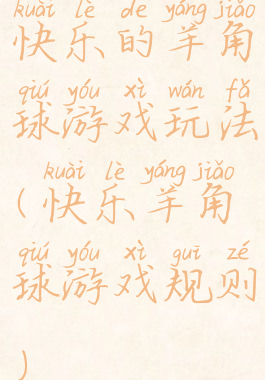 kuài lè de yáng jiǎo
快乐的羊角
qiú yóu xì wán fǎ
球游戏玩法
kuài lè yáng jiǎo
(快乐羊角
qiú yóu xì guī zé
球游戏规则
)